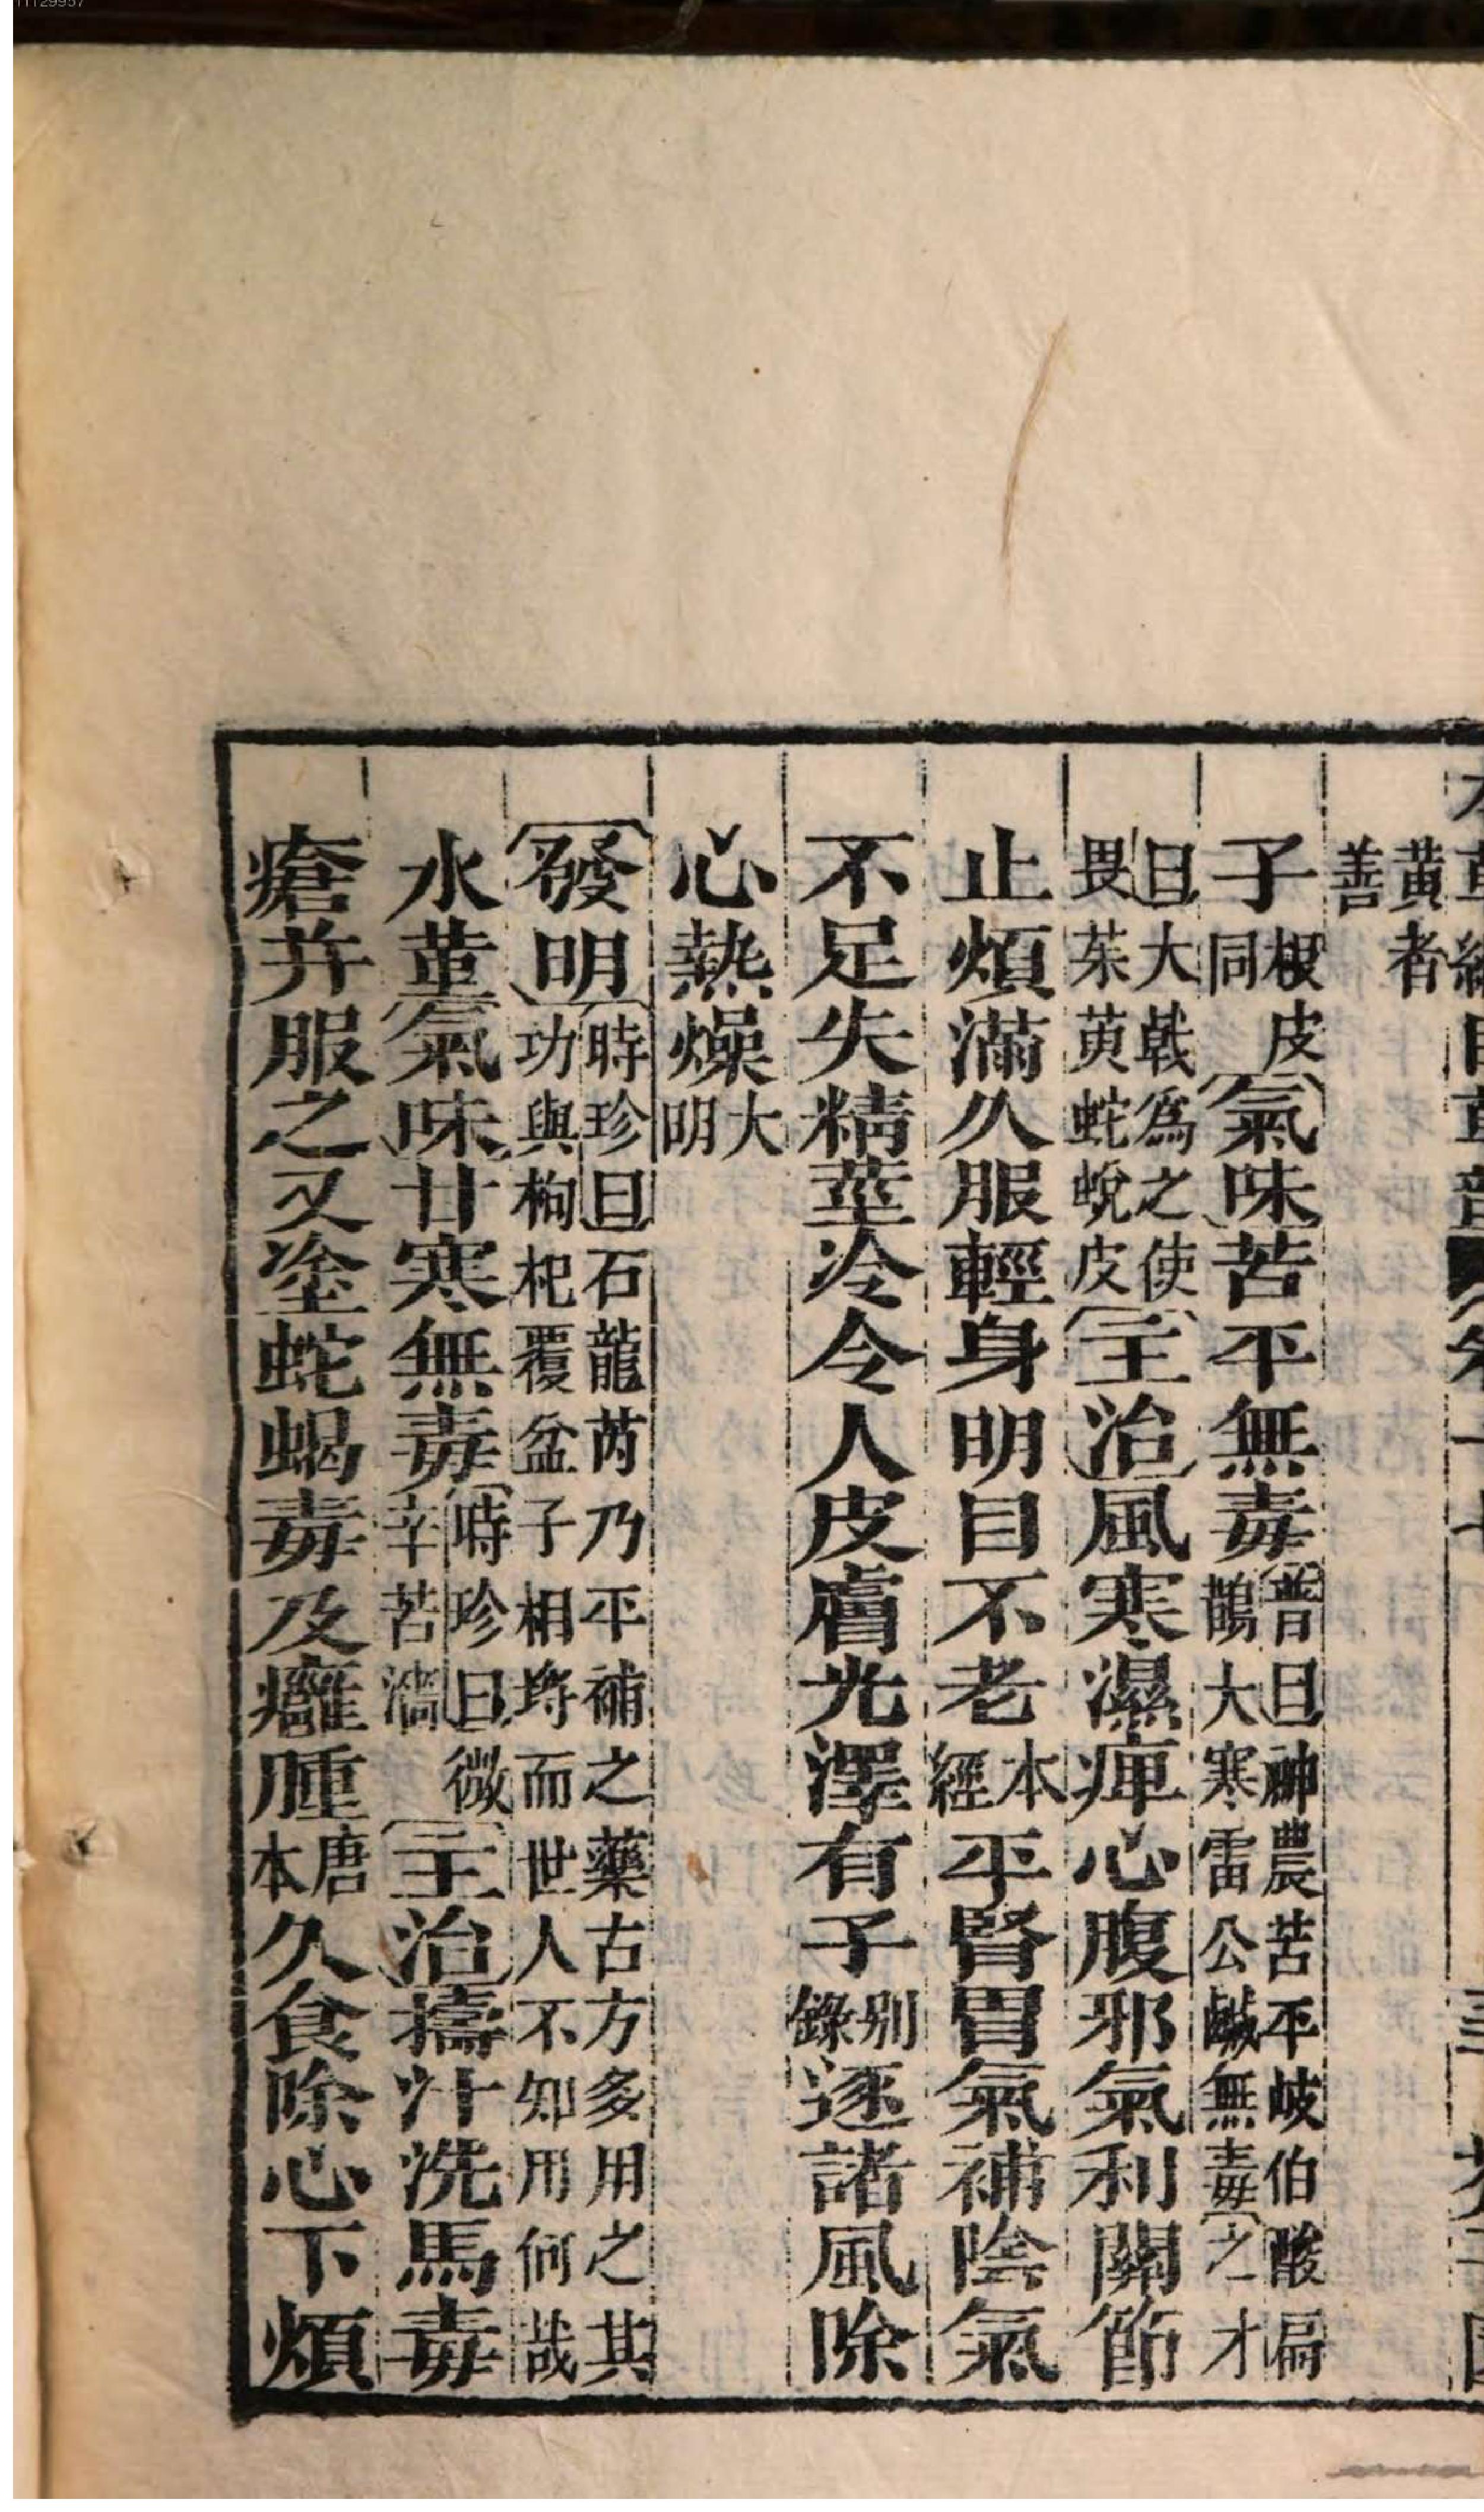 黃者
善
子根皮同氣味苦平無毒普曰神農苦平岐伯酸扁鵲大寒雷公鹹無毒之才
曰大戟爲之使畏茱萸蛇蛻皮主治風寒濕痺心腹邪氣利關節
止煩滿久服輕身明目不老本經平腎胃氣補陰氣
不足失精莖冷令人皮膚光澤有子别錄逐諸風除
心熱燥大明
發明時珍曰石龍芮乃平補之藥古方多用之其功與枸杞覆盆子相埒而世人不知用何哉
水堇氣味甘寒無毒時珍曰微辛苦濇主治擣汁洗馬毒
瘡并服之又塗蛇蝎毒及癰腫唐本久食除心下煩
11129957